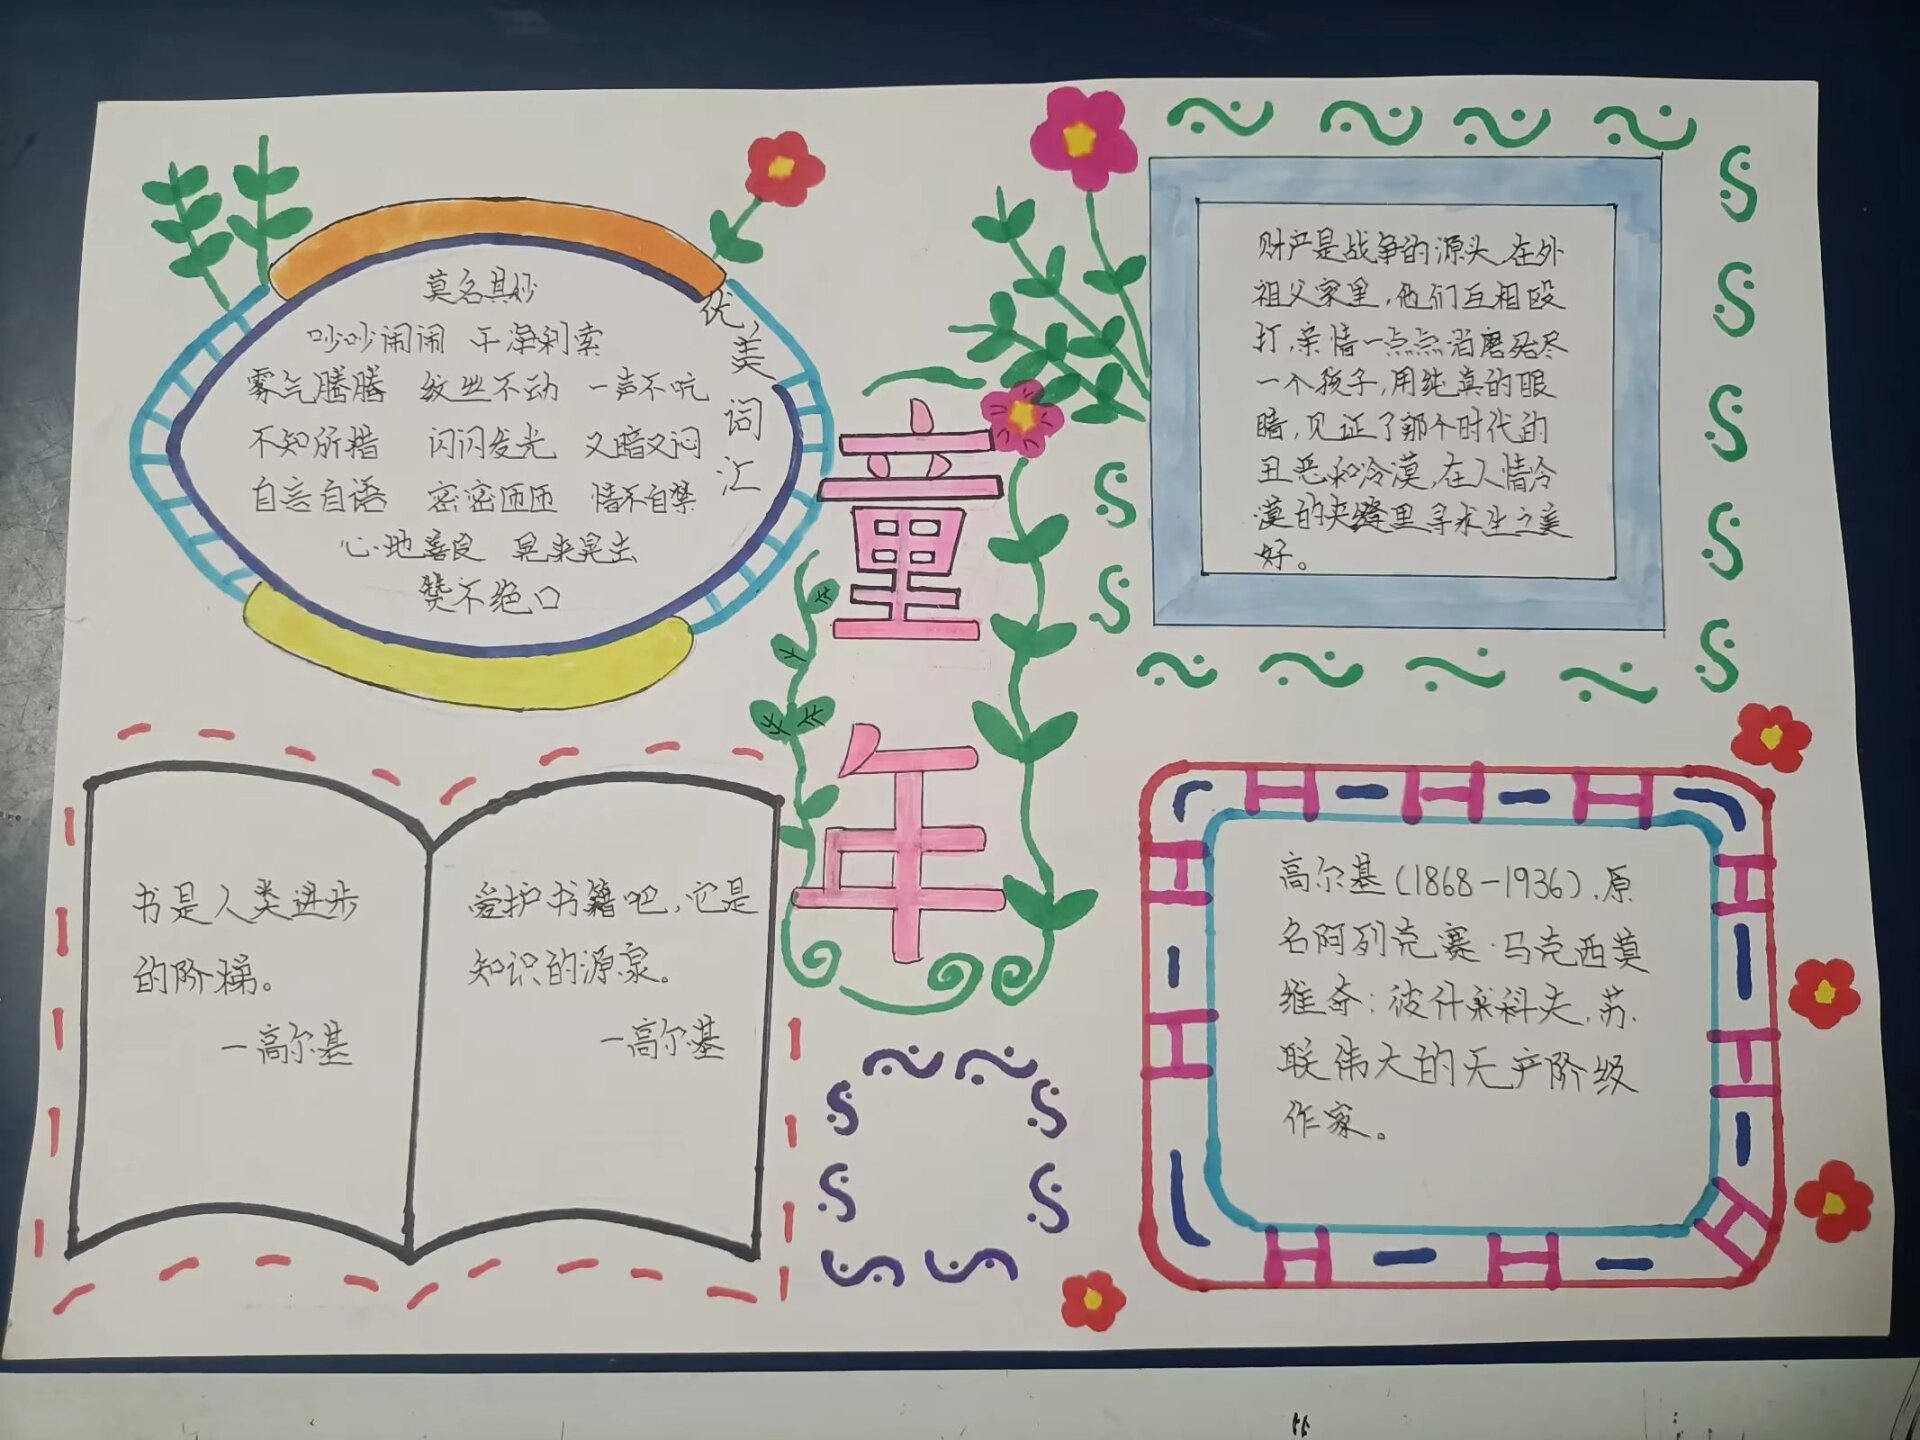 童年
优美词汇
莫名其妙
吵吵闹闹 干净利索
雾气腾腾 纹丝不动 一声不吭
不知所措 闪闪发光 又暗又闷
自言自语 密密匝匝 情不自禁
心地善良 晃来晃去
赞不绝口
财产是战争的源头,在外
祖父家里,他们互相殴
打,亲情一点点消磨殆尽
一个孩子,用纯真的眼
睛,见证了那个时代的
丑恶和冷漠,在人情冷
漠的夹缝里寻求生之美
好。
书是人类进步
的阶梯。
—高尔基
爱护书籍吧,它是
知识的源泉。
—高尔基
高尔基(1868-1936),原
名阿列克赛·马克西莫
维奇·彼什科夫,苏
联伟大的无产阶级
作家。